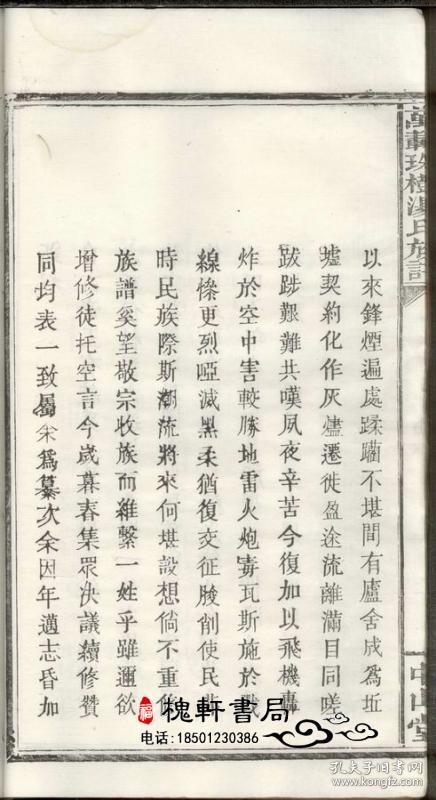 萬載珠樹湯氏族譜
以來鋒煙遍處蹂躪不堪間有廬舍成為坵
墟契約化作灰燼遷徙盈途流離滿目同嗟
跋踄艱難共嘆夙夜辛苦今復加以飛機轟
炸於空中害較勝地雷火炮毒瓦斯施於戰
線慘更烈啞滅黑柔猶復交征朘削使民
時民族際斯潮流將來何堪設想倘不重
族譜奚望敬宗收族而維繫一姓乎雖邇欲
增修徒托空言今歲暮春集眾決議續修贊
同均表一致屬余為纂次余因年邁志昏加
中山堂
槐軒書局
福
电话:18501230386
孔夫子旧书网